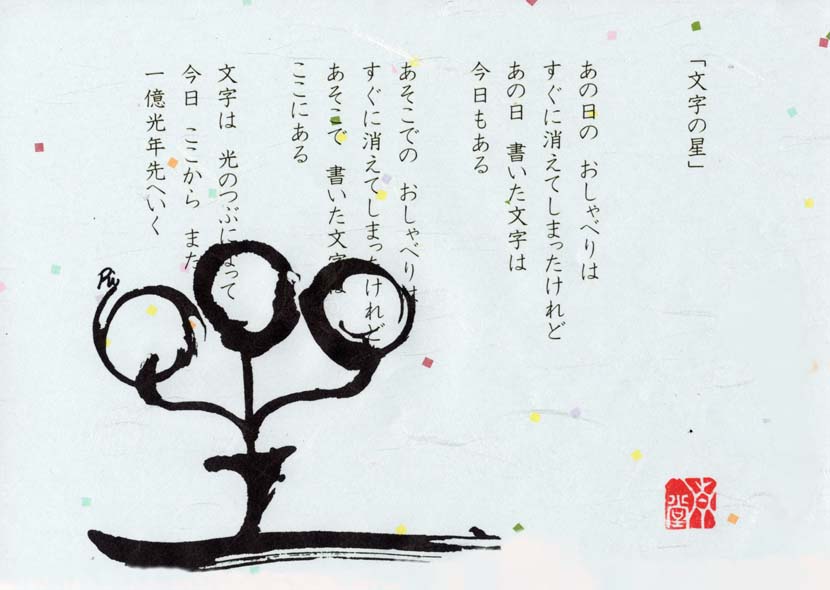 「文字の星」
あの日の　おしゃべりは
すぐに消えてしまったけれど
あの日　書いた文字は
今日もある
あそこでの　おしゃべりは
すぐに消えてしまったけれど
あそこで　書いた文字は
ここにある
文字は　光のつぶになって
今日　ここから　また
一億光年先へいく